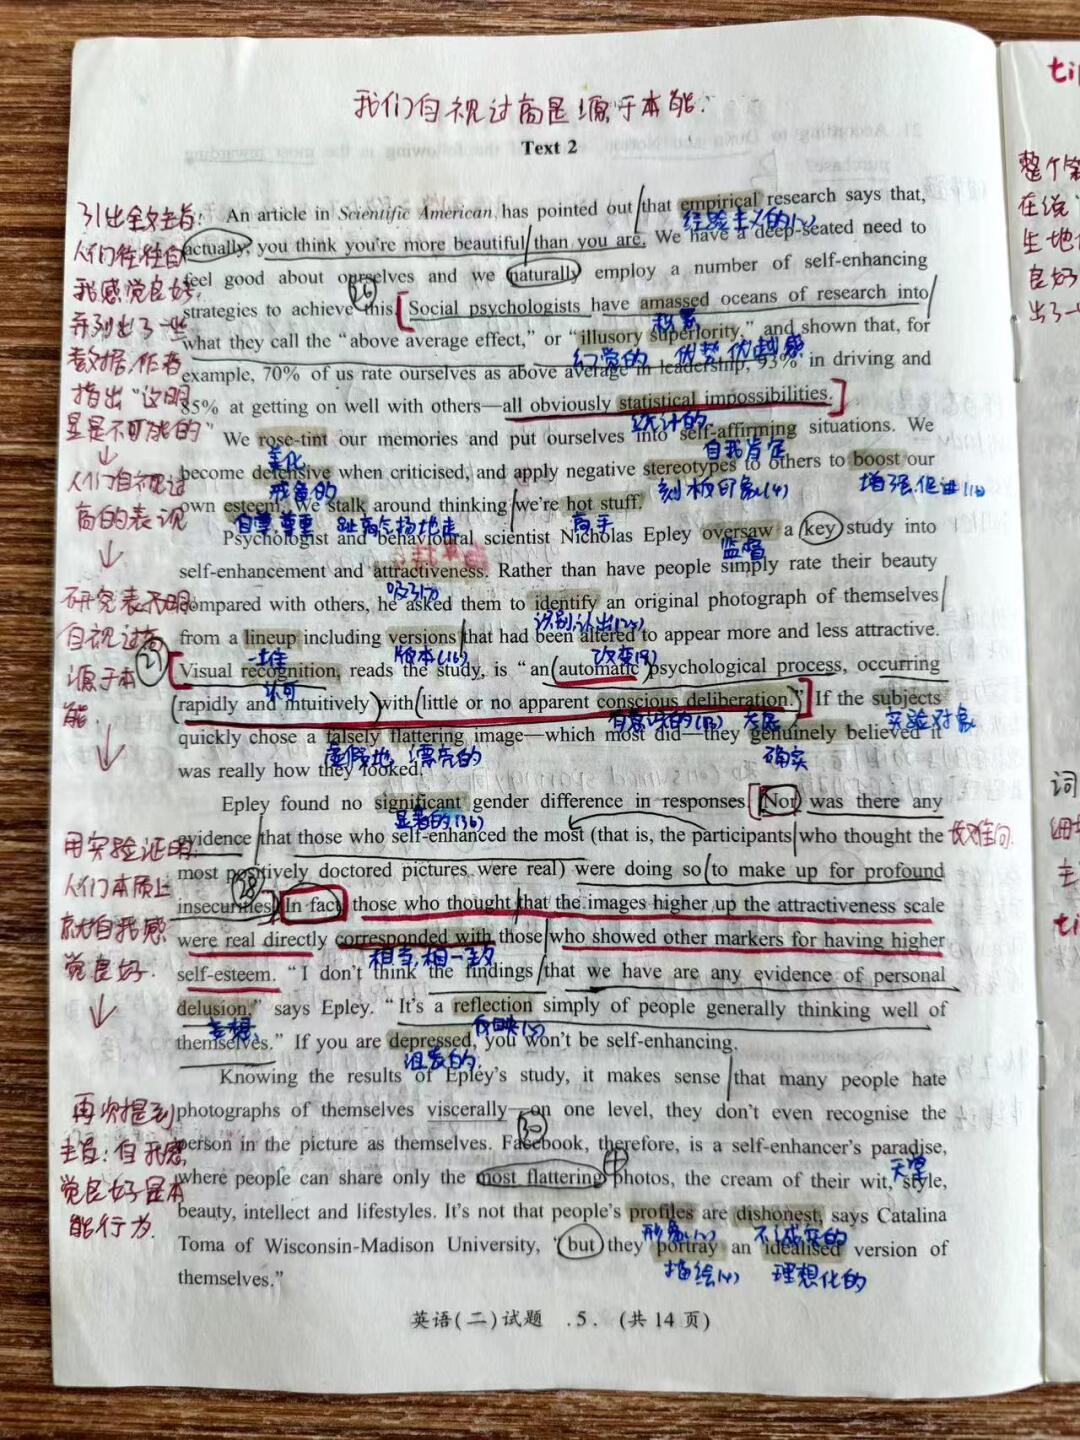 我们自视过高是源于本能.
Text 2
An article in Scientific American has pointed out that empirical research says that,
经验主义的(2)
actually, you think you're more beautiful than you are. We have a deep-seated need to
feel good about ourselves and we naturally employ a number of self-enhancing
26
strategies to achieve this. Social psychologists have amassed oceans of research into
积累
what they call the "above average effee," or "illusory superiority," and shown that, for
幻觉的 优势 优越感
example, 70% of us rate ourselves as above average in leadership, 93% in driving and
85% at getting on well with others—all obviously statistical impossibilities.
统计的
We rose-tint our memories and put ourselves into self-affirming situations. We
美化 自我肯定
become defensive when criticised, and apply negative stereotypes to others to boost our
戒备的 刻板印象(4) 增强,促进
own esteem. We stalk around thinking we're hot stuff.
自尊 尊重 趾高气扬地走 高手
Psychologist and behavioural scientist Nicholas Epley oversaw a key study into
监督
self-enhancement and attractiveness. Rather than have people simply rate their beauty
吸引力
compared with others, he asked them to identify an original photograph of themselves
识别,认出
from a lineup including versions that had been altered to appear more and less attractive.
一排 版本(16) 改变(9)
27
Visual recognition, reads the study, is "an automatic psychological process, occurring
认可
rapidly and intuitively with little or no apparent conscious deliberation." If the subjects
有意识的 实验对象
quickly chose a falsely flattering image—which most did—they genuinely believed it
虚假地 漂亮的 确实
was really how they looked.
Epley found no significant gender difference in responses. Nor was there any
显著的(36)
evidence that those who self-enhanced the most (that is, the participants who thought the
most positively doctored pictures were real) were doing so to make up for profound
28
insecurities. In fact, those who thought that the images higher up the attractiveness scale
were real directly corresponded with those who showed other markers for having higher
相当,相一致
self-esteem. "I don't think the findings that we have are any evidence of personal
delusion," says Epley. "It's a reflection simply of people generally thinking well of
妄想 反映
themselves." If you are depressed, you won't be self-enhancing.
沮丧的
Knowing the results of Epley's study, it makes sense that many people hate
photographs of themselves viscerally—on one level, they don't even recognise the
30
person in the picture as themselves. Facebook, therefore, is a self-enhancer's paradise,
天堂
where people can share only the most flattering photos, the cream of their wit, style,
beauty, intellect and lifestyles. It's not that people's profiles are dishonest, says Catalina
形象 不诚实的
Toma of Wisconsin-Madison University, "but they portray an idealised version of
描绘(4) 理想化的
themselves."
引出全文主旨:
人们往往自
我感觉良好,
并列出了一些
数据,作者
指出"这明
显是不可能的"
人们自视过
高的表现
研究表明
自视过高
源于本
能.
用实验证明
人们本质上
就自我感
觉良好.
再次提到
主旨:自我感
觉良好是本
能行为.
英语(二)试题 .5. (共14页)
整个
在说
生地
良好
出了一
词
主